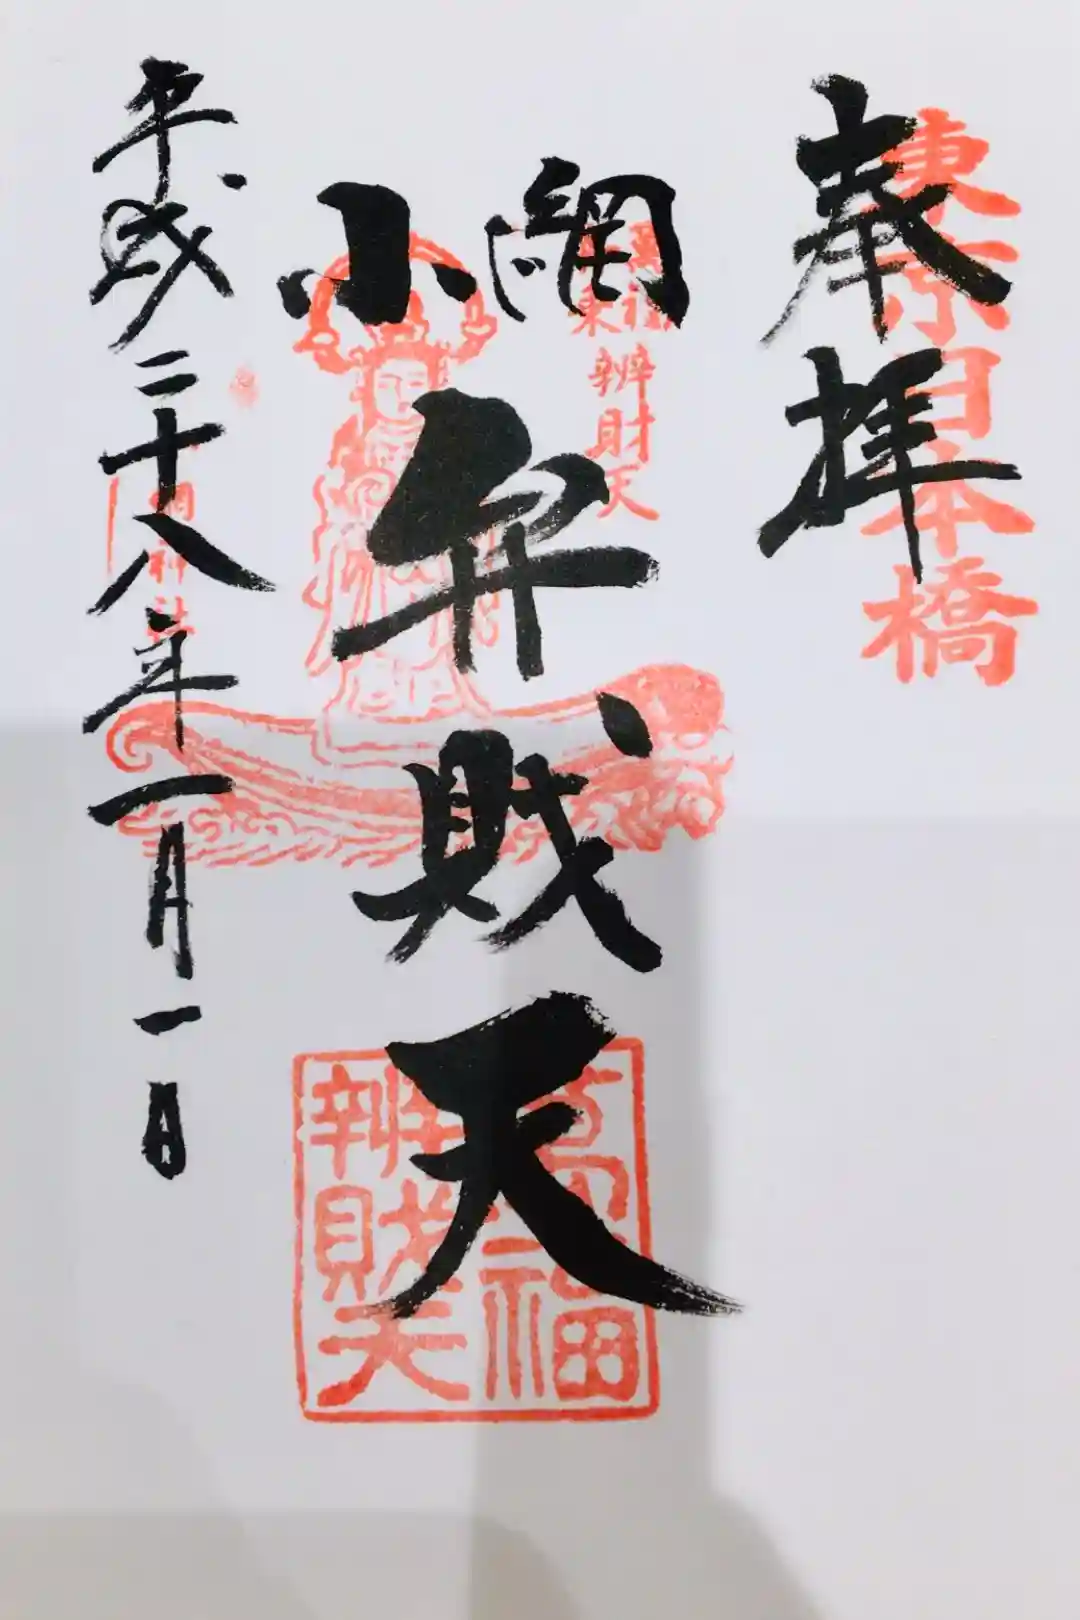 奉拝
東京日本橋
小網
弁財天
萬福
辨財天
萬福
辨財天
平成二十八年一月一日
網神社